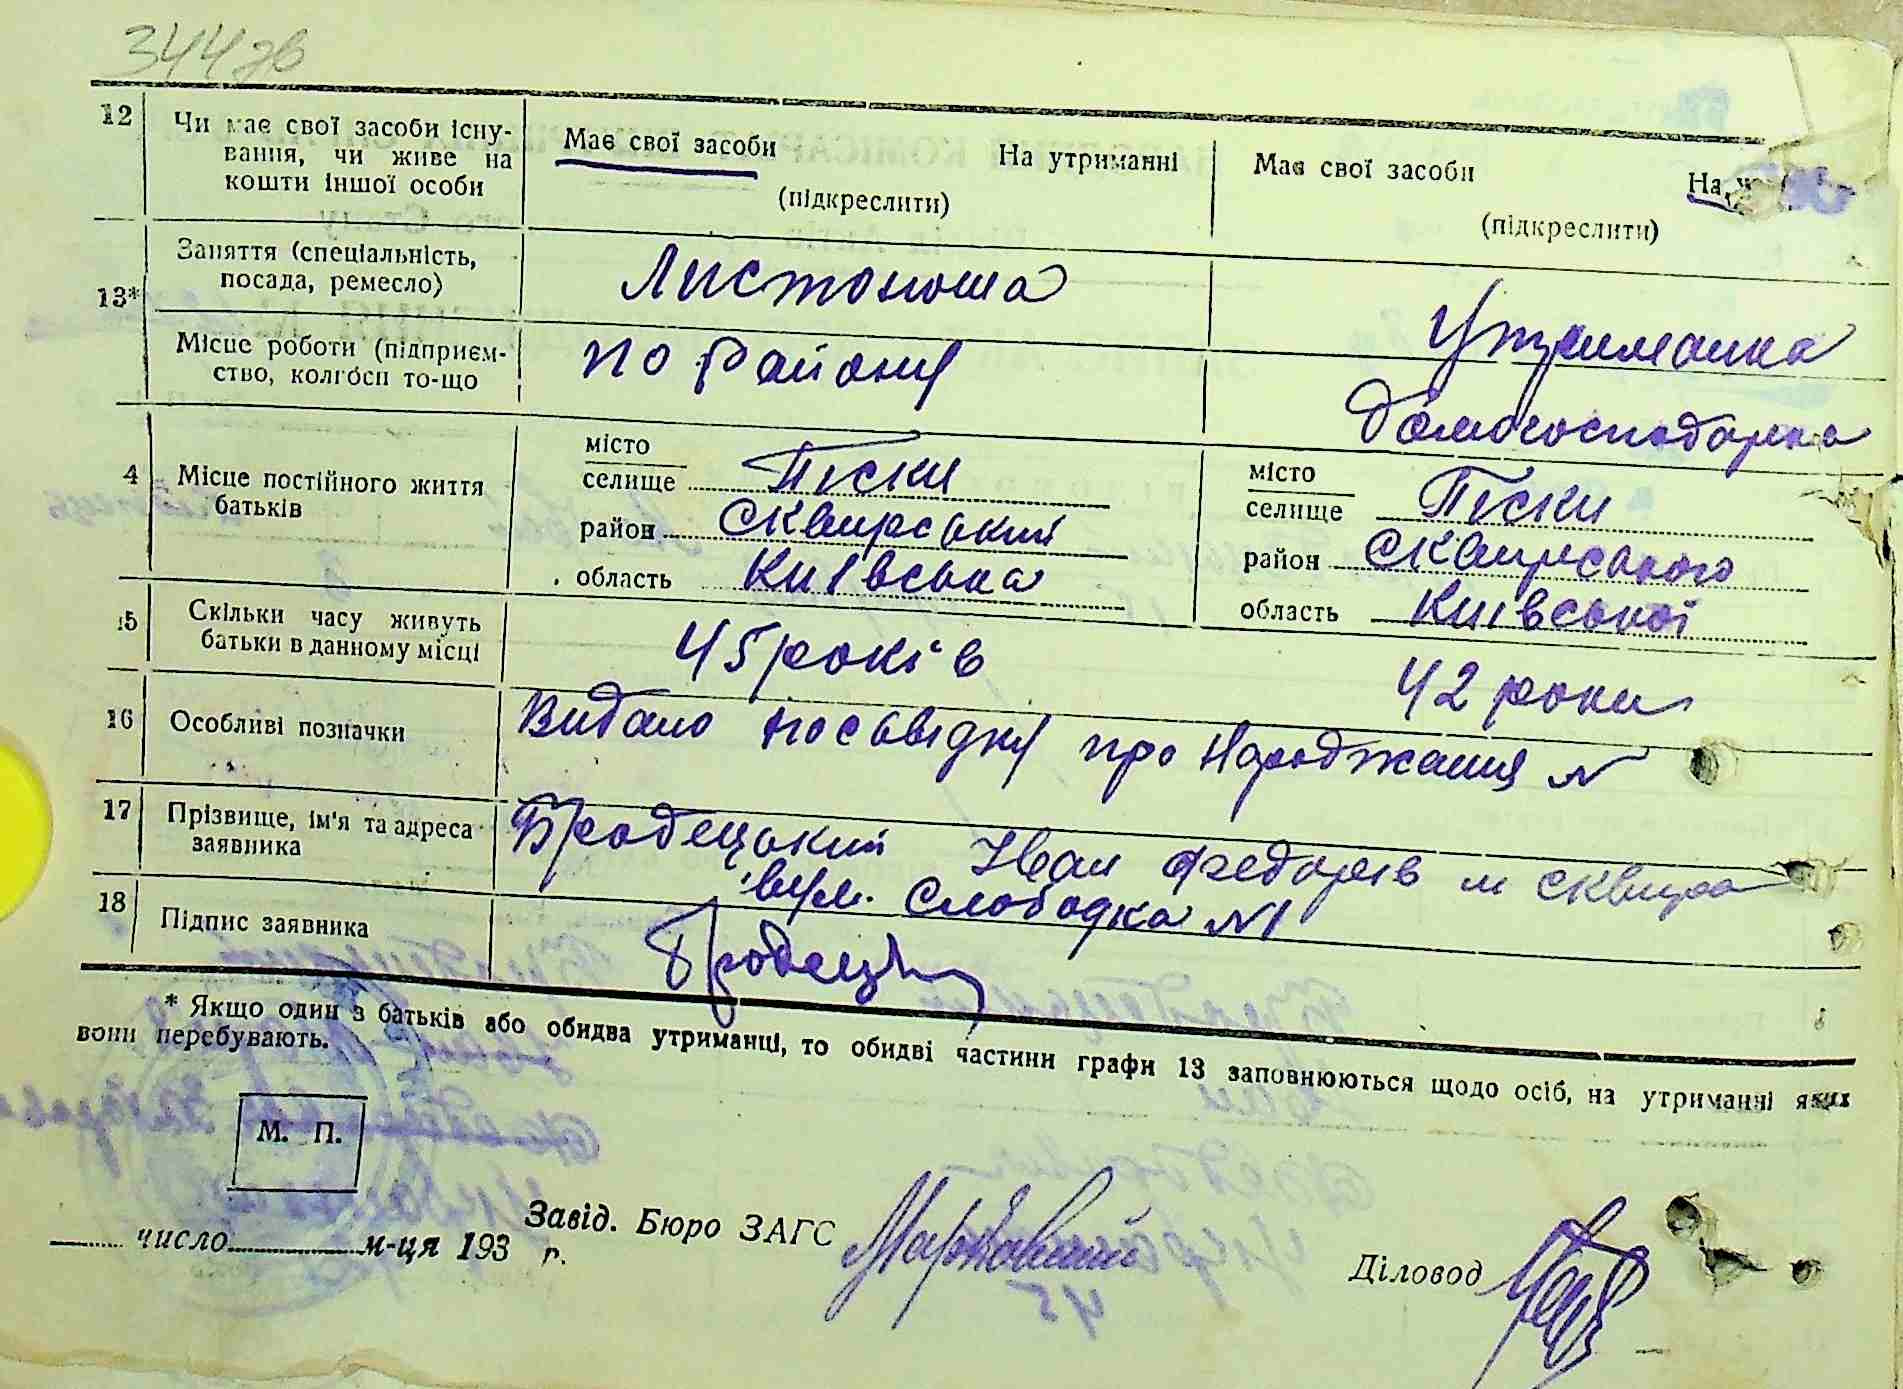 344 зв
12 Чи має свої засоби існу-
вання, чи живе на
кошти іншої особи
Має свої засоби На утриманні
(підкреслити)
Має свої засоби На
(підкреслити)
13*
Заняття (спеціальність,
посада, ремесло)
Листоноша
Утриманка
Місце роботи (підприєм-
ство, колгосп то-що
по району
домогосподарка
4 Місце постійного життя
батьків
місто
селище Піски
район Сквирський
область Київська
місто
селище Піски
район Сквирського
область Київської
15 Скільки часу живуть
батьки в данному місці
45 років
42 роки
16 Особливі позначки
Видано посвідку про народження №
17 Прізвище, ім'я та адреса
заявника
Бродецький Іван Федорів м Сквира
вул. Слободка №1
18 Підпис заявника
Бродецьк
* Якщо один з батьків або обидва утриманці, то обидві частини графи 13 заповнюються щодо осіб, на утриманні яких
вони перебувають.
М. П.
число м-ця 193 р.
Завід. Бюро ЗАГС
Діловод